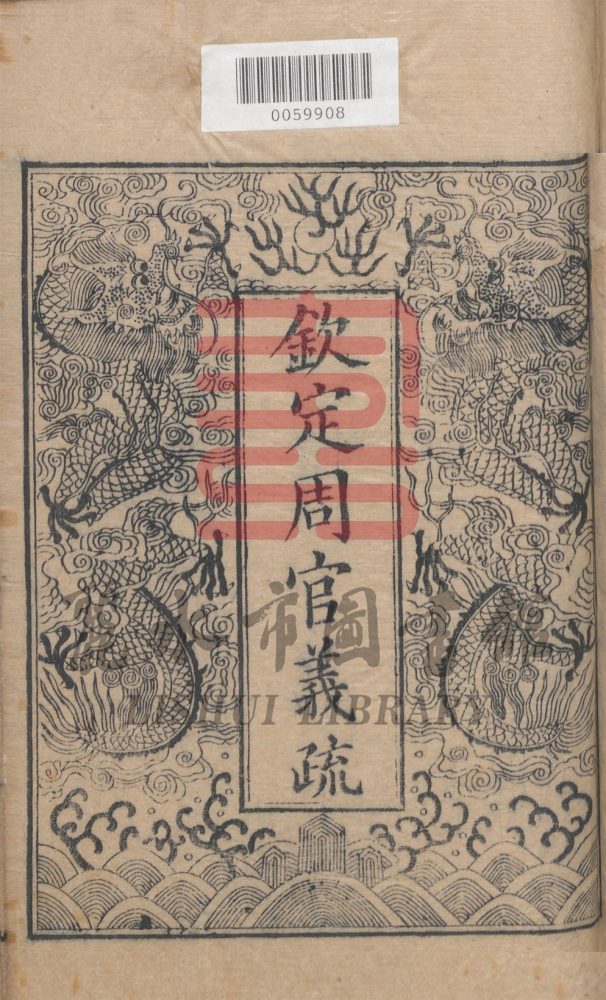 0059908
欽定周官義疏
麗水市圖書館
LISHUI LIBRARY